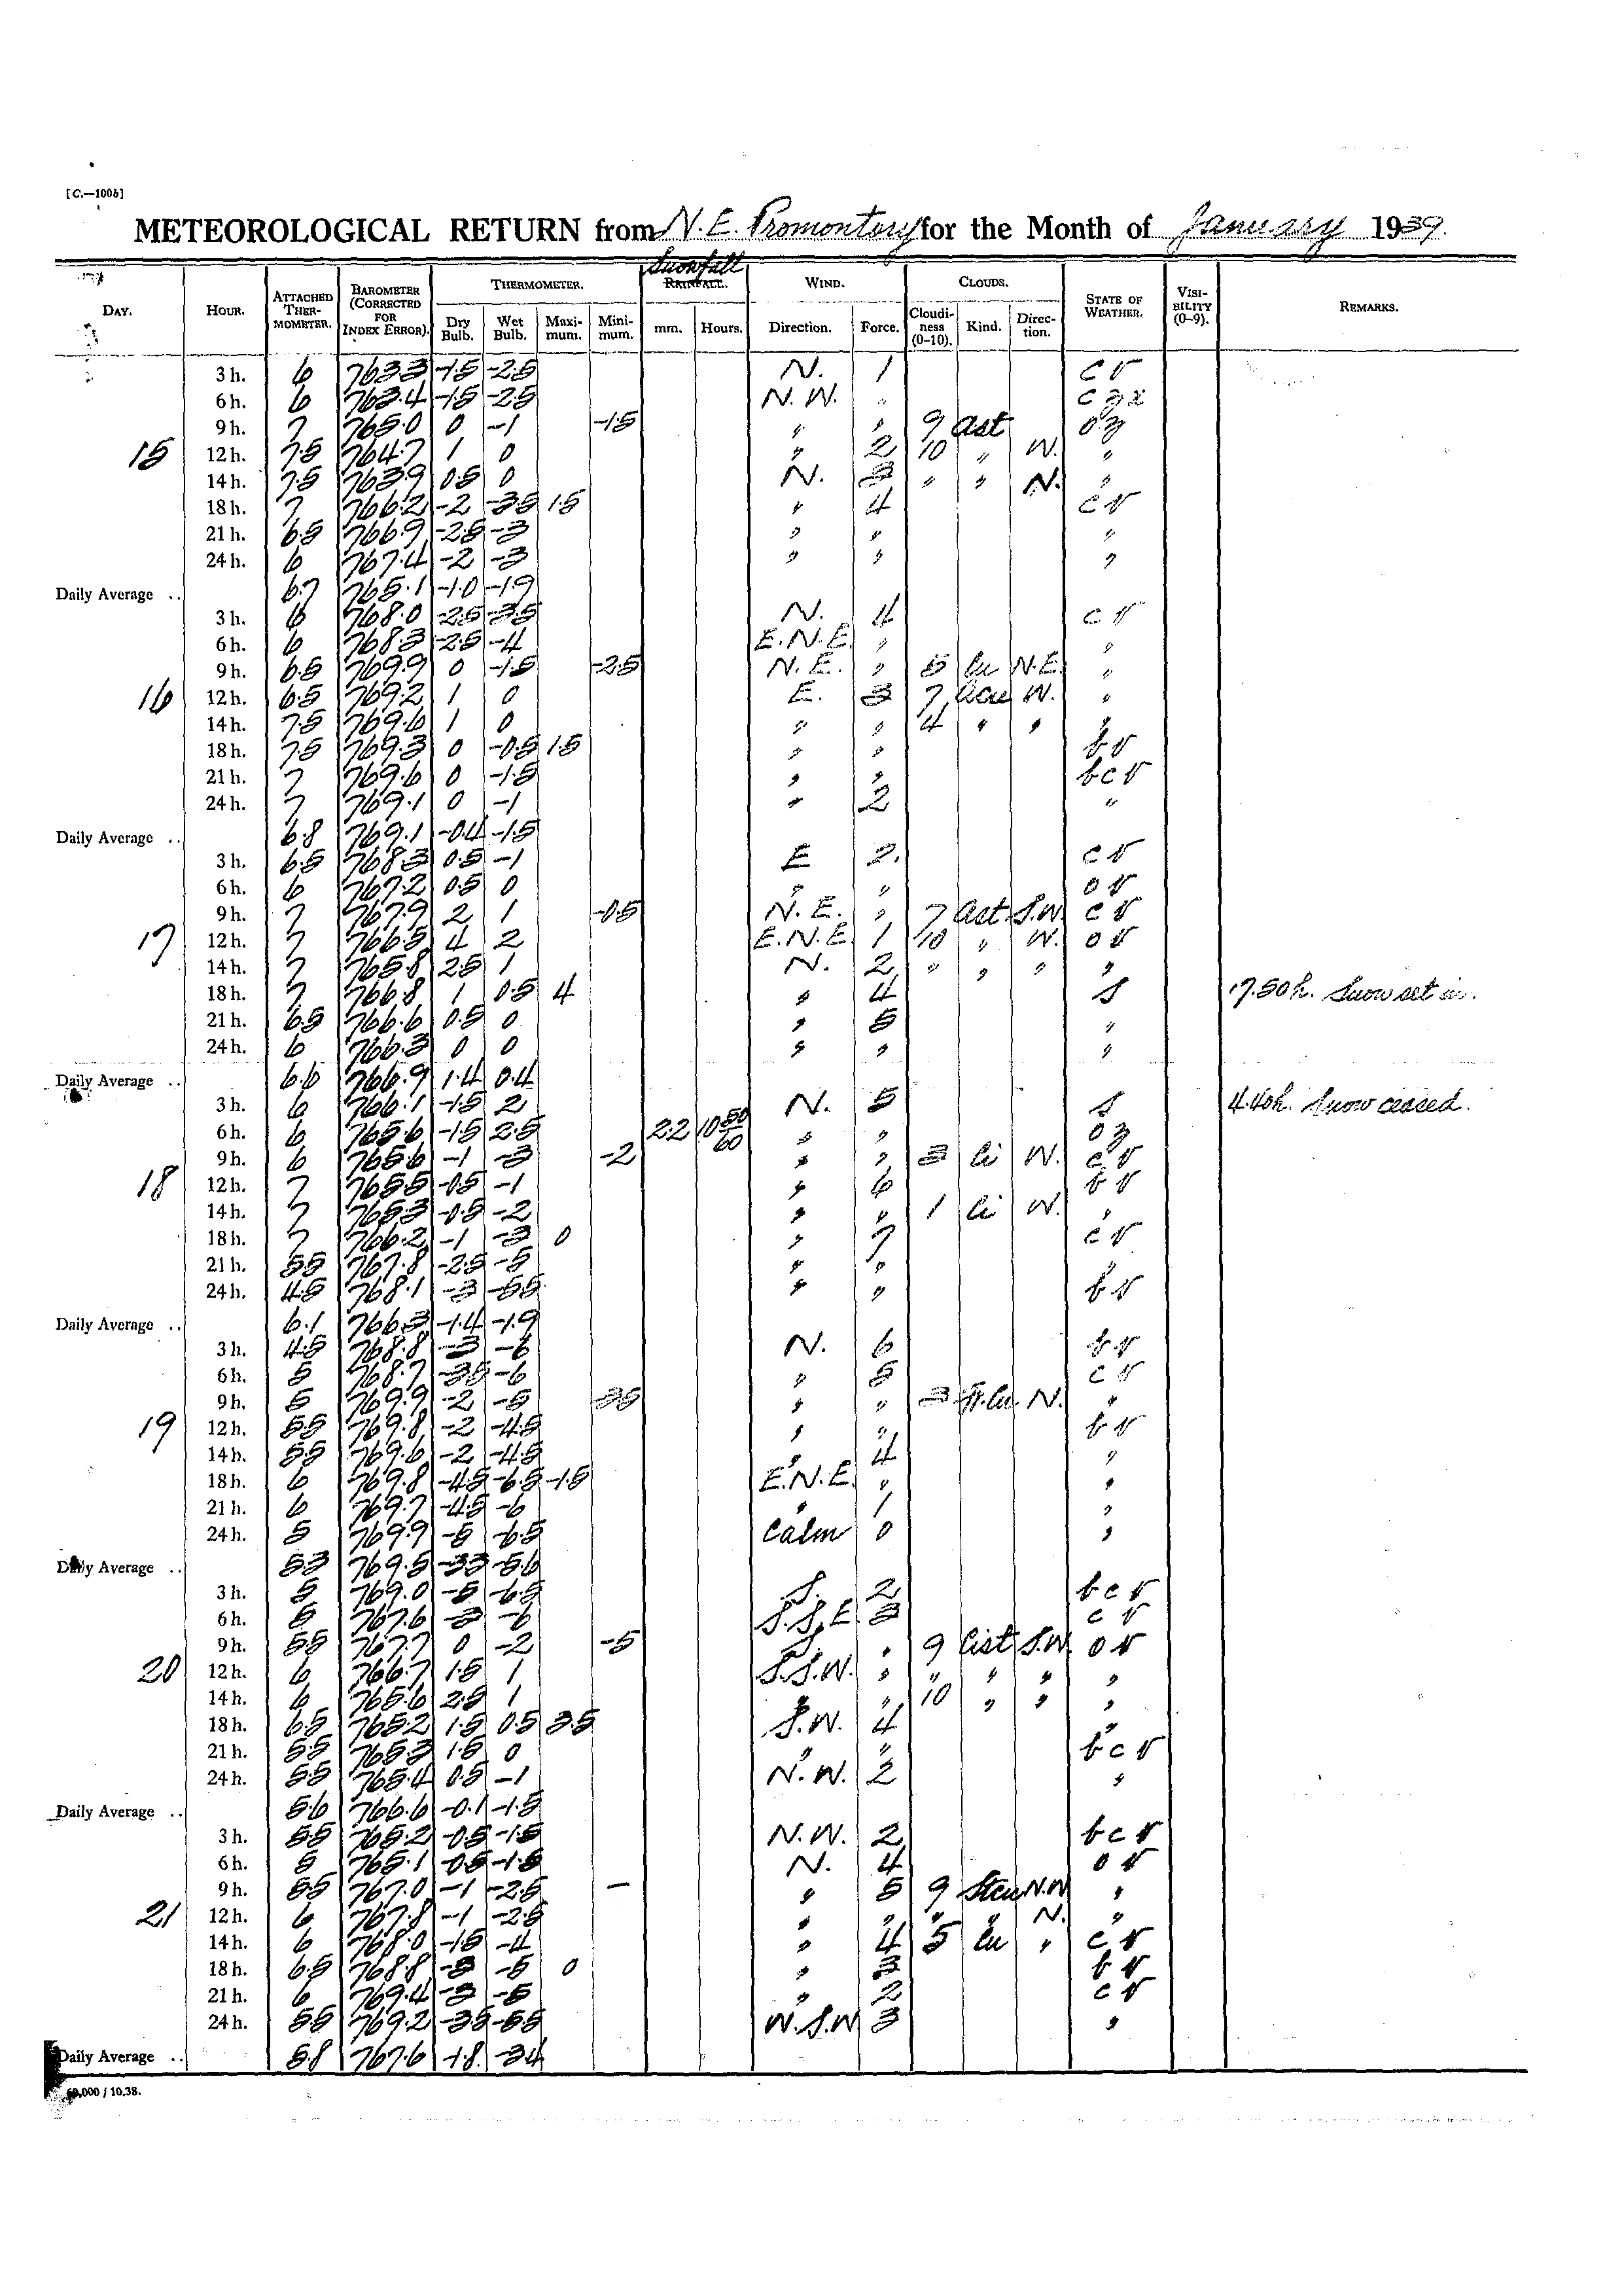 [C.—100b]
METEOROLOGICAL RETURN from N. E. Promontory for the Month of January 1939.
Snowfall
DAY. HOUR. ATTACHED THER-MOMETER. BAROMETER (CORRECTED FOR INDEX ERROR). THERMOMETER. RAINFALL. WIND. CLOUDS. STATE OF WEATHER. VISI-BILITY (0–9). REMARKS.
Dry Bulb. Wet Bulb. Maxi-mum. Mini-mum. mm. Hours. Direction. Force. Cloudi-ness (0–10). Kind. Direc-tion.
3 h. 6 763.3 -1.5 -2.5 N. 1 c v
6 h. 6 763.4 -1.5 -2.5 N. W. " c z x
9 h. 7 765.0 0 -1 -1.5 " " 9 Ast o z
15 12 h. 7.5 764.7 1 0 " 2 10 " W. "
14 h. 7.5 763.9 0.5 0 N. 3 " " N. "
18 h. 7 766.2 -2 -3.5 1.5 " 4 c v
21 h. 6.5 766.9 -2.5 -3 " " "
24 h. 6 767.4 -2 -3 " " "
Daily Average .. 6.7 765.1 -1.0 -1.9
3 h. 6 768.0 -2.5 -3.5 N. 4 c v
6 h. 6 768.3 -2.5 -4 E. N. E. " "
9 h. 6.5 769.9 0 -1.5 -2.5 N. E. " 5 Cu N.E. "
16 12 h. 6.5 769.2 1 0 E. 3 7 Acu W. "
14 h. 7.5 769.6 1 0 " " 4 " " "
18 h. 7.5 769.3 0 -0.5 1.5 " " b v
21 h. 7 769.6 0 -1.5 " " b c v
24 h. 7 769.1 0 -1 " 2 "
Daily Average .. 6.8 769.1 -0.4 -1.5
3 h. 6.5 768.3 0.5 -1 E 2. c v
6 h. 6 767.2 0.5 0 " " o v
9 h. 7 767.9 2 1 -0.5 N. E. " 7 Ast S.W. c v
17 12 h. 7 766.5 4 2 E.N.E. 1 10 " W. o v
14 h. 7 765.8 2.5 1 N. 2 " " " "
18 h. 7 766.8 1 0.5 4 " 4 s 17.50 h. Snow set in.
21 h. 6.5 766.6 0.5 0 " 5 "
24 h. 6 766.3 0 0 " " "
Daily Average .. 6.6 766.9 1.4 0.4
3 h. 6 766.1 -1.5 2 N. 5 s 4.40h. Snow ceased.
6 h. 6 765.6 -1.5 2.5 2.2 10 50/60 " " o z
9 h. 6 765.6 -1 -3 -2 " " 3 Ci W. c v
18 12 h. 7 765.5 -0.5 -1 " 6 b v
14 h. 7 765.3 -0.5 -2 " " 1 Ci W. "
18 h. 7 766.2 -1 -3 0 " 7 c v
21 h. 5.5 767.8 -2.5 -5 " " "
24 h. 4.5 768.1 -3 -5.5 " " b v
Daily Average .. 6.1 766.3 -1.4 -1.9
3 h. 4.5 768.8 -3 -6 N. 6 b v
6 h. 5 768.7 -3.5 -6 " 5 c v
9 h. 5 769.9 -2 -5 -3.5 " " 3 Fr.Cu. N. "
19 12 h. 5.5 769.8 -2 -4.5 " " b v
14 h. 5.5 769.6 -2 -4.5 " 4 "
18 h. 6 769.8 -4.5 -6.5 -1.5 E.N.E. " "
21 h. 6 769.7 -4.5 -6 " 1 "
24 h. 5 769.9 -5 -6.5 Calm 0 "
Daily Average .. 5.3 769.5 -3.3 -5.6
3 h. 5 769.0 -5 -6.5 S. 2 b c v
6 h. 5 767.6 -3 -6 S.S.E 3 c v
9 h. 5.5 767.7 0 -2 -5 S. " 9 Cist S.W o v
20 12 h. 6 766.7 1.5 1 S.S.W. " " " " "
14 h. 6 765.6 2.5 1 " " 10 " " "
18 h. 6.5 765.2 1.5 0.5 3.5 S.W. 4 "
21 h. 5.5 765.3 1.5 0 " " b c v
24 h. 5.5 765.4 0.5 -1 N. W. 2 "
Daily Average .. 5.6 766.6 -0.1 -1.5
3 h. 5.5 765.2 -0.5 -1.5 N.W. 2 b c v
6 h. 5 765.1 -0.5 -1.5 N. 4 o v
9 h. 5.5 767.0 -1 -2.5 — " 5 9 Stcu N.W "
21 12 h. 6 767.8 -1 -2.5 " " " " N. "
14 h. 6 768.0 -1.5 -4 " 4 5 Cu " c v
18 h. 6.5 768.8 -3 -5 0 " 3 b v
21 h. 6 769.4 -3 -5 " 2 c v
24 h. 5.5 769.2 -3.5 -5.5 W.S.W 3 "
Daily Average .. 5.8 767.6 -1.8 -3.4
60,000 / 10.38.